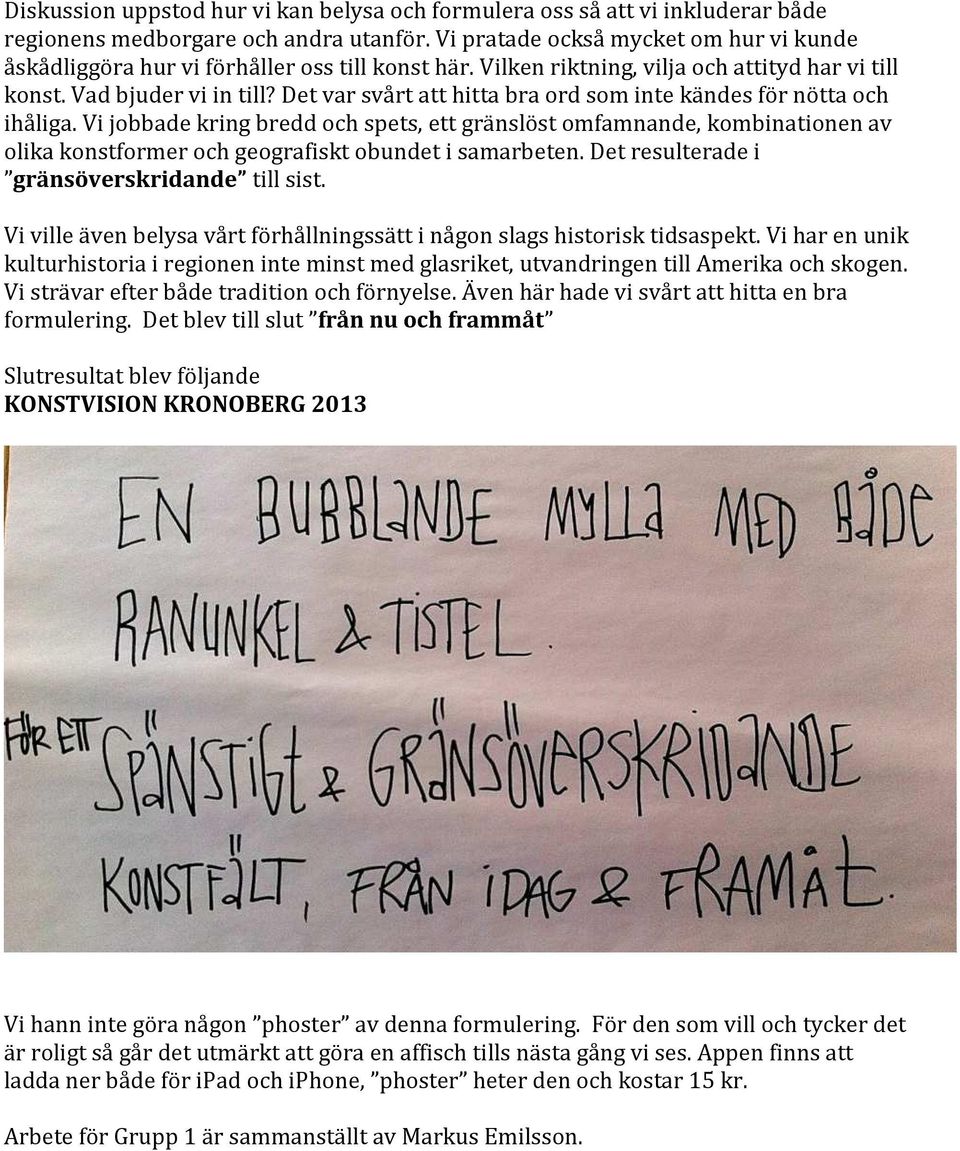 Diskussion uppstod hur vi kan belysa och formulera oss så att vi inkluderar både
regionens medborgare och andra utanför. Vi pratade också mycket om hur vi kunde
åskådliggöra hur vi förhåller oss till konst här. Vilken riktning, vilja och attityd har vi till
konst. Vad bjuder vi in till? Det var svårt att hitta bra ord som inte kändes för nötta och
ihåliga. Vi jobbade kring bredd och spets, ett gränslöst omfamnande, kombinationen av
olika konstformer och geografiskt obundet i samarbeten. Det resulterade i
”gränsöverskridande” till sist.
Vi ville även belysa vårt förhållningssätt i någon slags historisk tidsaspekt. Vi har en unik
kulturhistoria i regionen inte minst med glasriket, utvandringen till Amerika och skogen.
Vi strävar efter både tradition och förnyelse. Även här hade vi svårt att hitta en bra
formulering. Det blev till slut ”från nu och frammåt”
Slutresultat blev följande
KONSTVISION KRONOBERG 2013
EN BUBBLANDE MYLLA MED BÅDE
RANUNKEL & TISTEL.
FÖR ETT SPÄNSTIGT & GRÄNSÖVERSKRIDANDE
KONSTFÄLT, FRÅN IDAG & FRAMÅT.
Vi hann inte göra någon ”phoster” av denna formulering. För den som vill och tycker det
är roligt så går det utmärkt att göra en affisch tills nästa gång vi ses. Appen finns att
ladda ner både för iPad och iPhone, ”phoster” heter den och kostar 15 kr.
Arbete för Grupp 1 är sammanställt av Markus Emilsson.